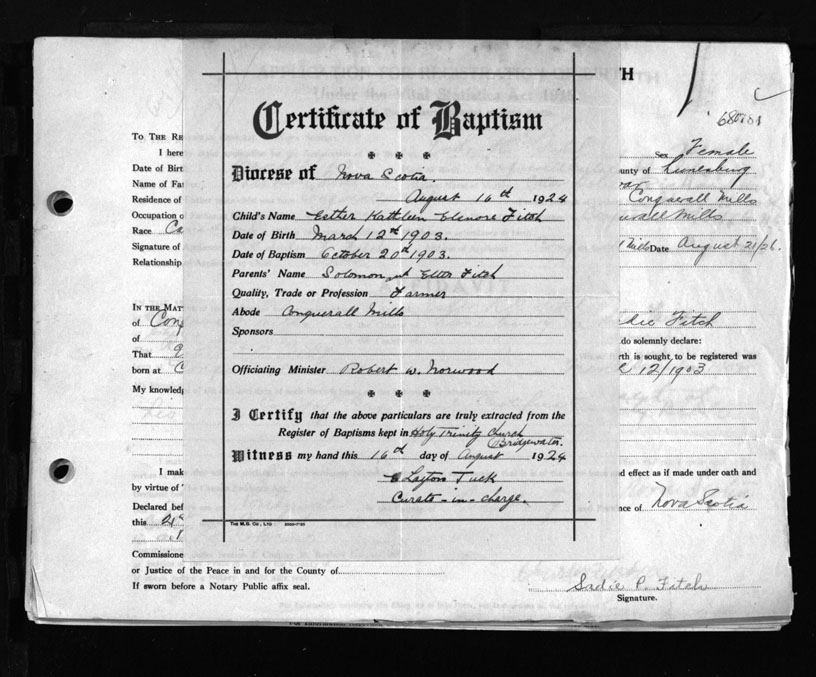 TH
680701
Certificate of Baptism
Diocese of Nova Scotia.
August 16th 1924
Child's Name Esther Kathleen Elenore Fitch
Date of Birth March 12th 1903.
Date of Baptism October 20th 1903.
Parents' Name Solomon and Etter Fitch
Quality, Trade or Profession Farmer
Abode Conquerall Mills
Sponsors
Officiating Minister Robert W. Norwood
I Certify that the above particulars are truly extracted from the
Register of Baptisms kept in Holy Trinity Church
Bridgewater.
Witness my hand this 16th day of August 1924
Layton Tuck
Curate-in-charge.
The M.B. Co., Ltd
To The Re
I here
Date of Birt
Name of Fa
Residence of
Occupation o
Race Ca
Signature of
Relationship
In the Mat
of Conq
of
That
born at C
My knowledg
I mak
by virtue of
Declared bef
this 21s
Commissione
or Justice of the Peace in and for the County of
If sworn before a Notary Public affix seal.
Sex Female
unty of Lunenburg
Conquerall Mills
uerall Mills
Mills Date August 21/26.
die Fitch
do solemnly declare:
rth is sought, to be registered was
12/1903
d effect as if made under oath and
nce of Nova Scotia
Sadie P. Fitch
Signature.